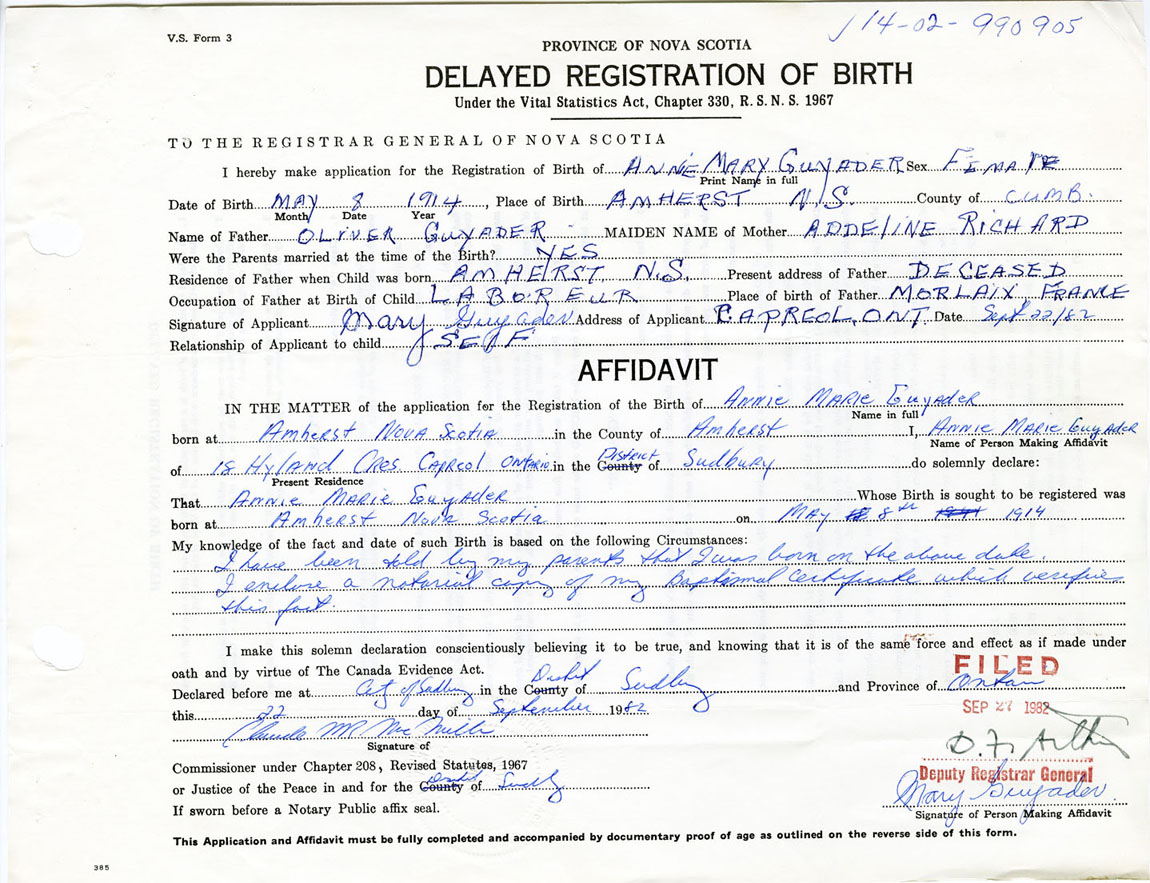 V.S. Form 3
14-02-990905
PROVINCE OF NOVA SCOTIA
DELAYED REGISTRATION OF BIRTH
Under the Vital Statistics Act, Chapter 330, R.S.N.S. 1967
TO THE REGISTRAR GENERAL OF NOVA SCOTIA
I hereby make application for the Registration of Birth of ANNIE MARY GUYADER Sex FEMALE
Print Name in full
Date of Birth MAY 8 1914, Place of Birth AMHERST N.S. County of CUMB.
Month Date Year
Name of Father OLIVER GUYADER MAIDEN NAME of Mother ADDELINE RICHARD
Were the Parents married at the time of the Birth? YES
Residence of Father when Child was born AMHERST N.S. Present address of Father DECEASED
Occupation of Father at Birth of Child LABOREUR Place of birth of Father MORLAIX, FRANCE
Signature of Applicant Mary Guyader Address of Applicant CAPREOL, ONT. Date Sept 22/82
Relationship of Applicant to child SELF
AFFIDAVIT
IN THE MATTER of the application for the Registration of the Birth of Annie Marie Guyader
Name in full
born at Amherst Nova Scotia in the County of Amherst I, Annie Marie Guyader
Name of Person Making Affidavit
of 18 Hyland Cres Capreol Ontario in the County District of Sudbury do solemnly declare:
Present Residence
That Annie Marie Guyader Whose Birth is sought to be registered was
born at Amherst Nova Scotia on May 8th 1914
My knowledge of the fact and date of such Birth is based on the following Circumstances:
I have been told by my parents that I was born on the above date.
I enclose a notorial copy of my Baptismal Certificate which verifies
this fact.
I make this solemn declaration conscientiously believing it to be true, and knowing that it is of the same force and effect as if made under
oath and by virtue of The Canada Evidence Act.
FILED
Declared before me at City of Sudbury in the County District of Sudbury and Province of Ontario
this 22 day of September 1982
SEP 27 1982
Signature of
Commissioner under Chapter 208, Revised Statutes, 1967
Deputy Registrar General
or Justice of the Peace in and for the County District of Sudbury
Mary Guyader
If sworn before a Notary Public affix seal.
Signature of Person Making Affidavit
This Application and Affidavit must be fully completed and accompanied by documentary proof of age as outlined on the reverse side of this form.
385